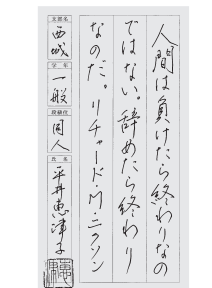 人間は負けたら終わりなの
ではない。辞めたら終わり
なのだ。リチャード・M・ニクソン
支部名
西城
学年
一般
段級位
同人
氏名
平井恵津子